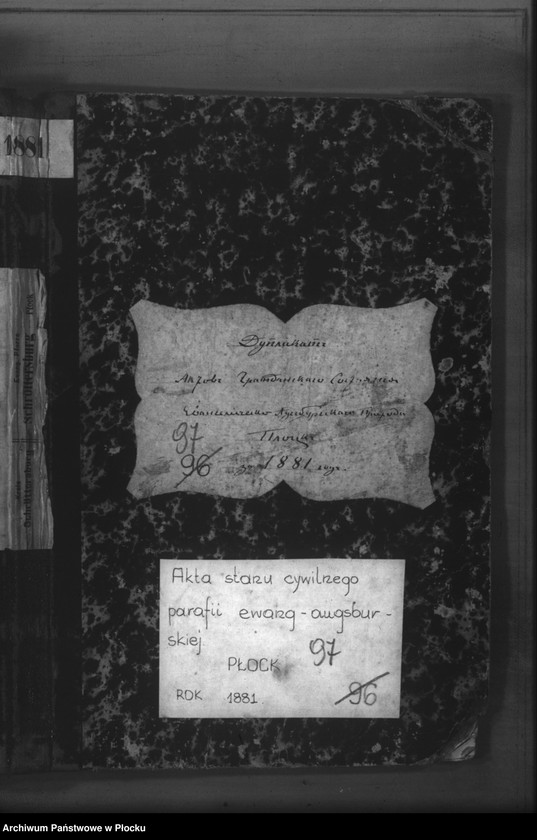 1881
Дупликатъ
Актовъ Гражданскаго Состоянія
Евангелическо Аугсбургскаго Прихода
Плоцкъ
97
96 за 1881 годъ.
Akta stanu cywilnego
parafii ewang-augsbur-
skiej
PŁOCK 97
ROK 1881 96
Archiwum Państwowe w Płocku